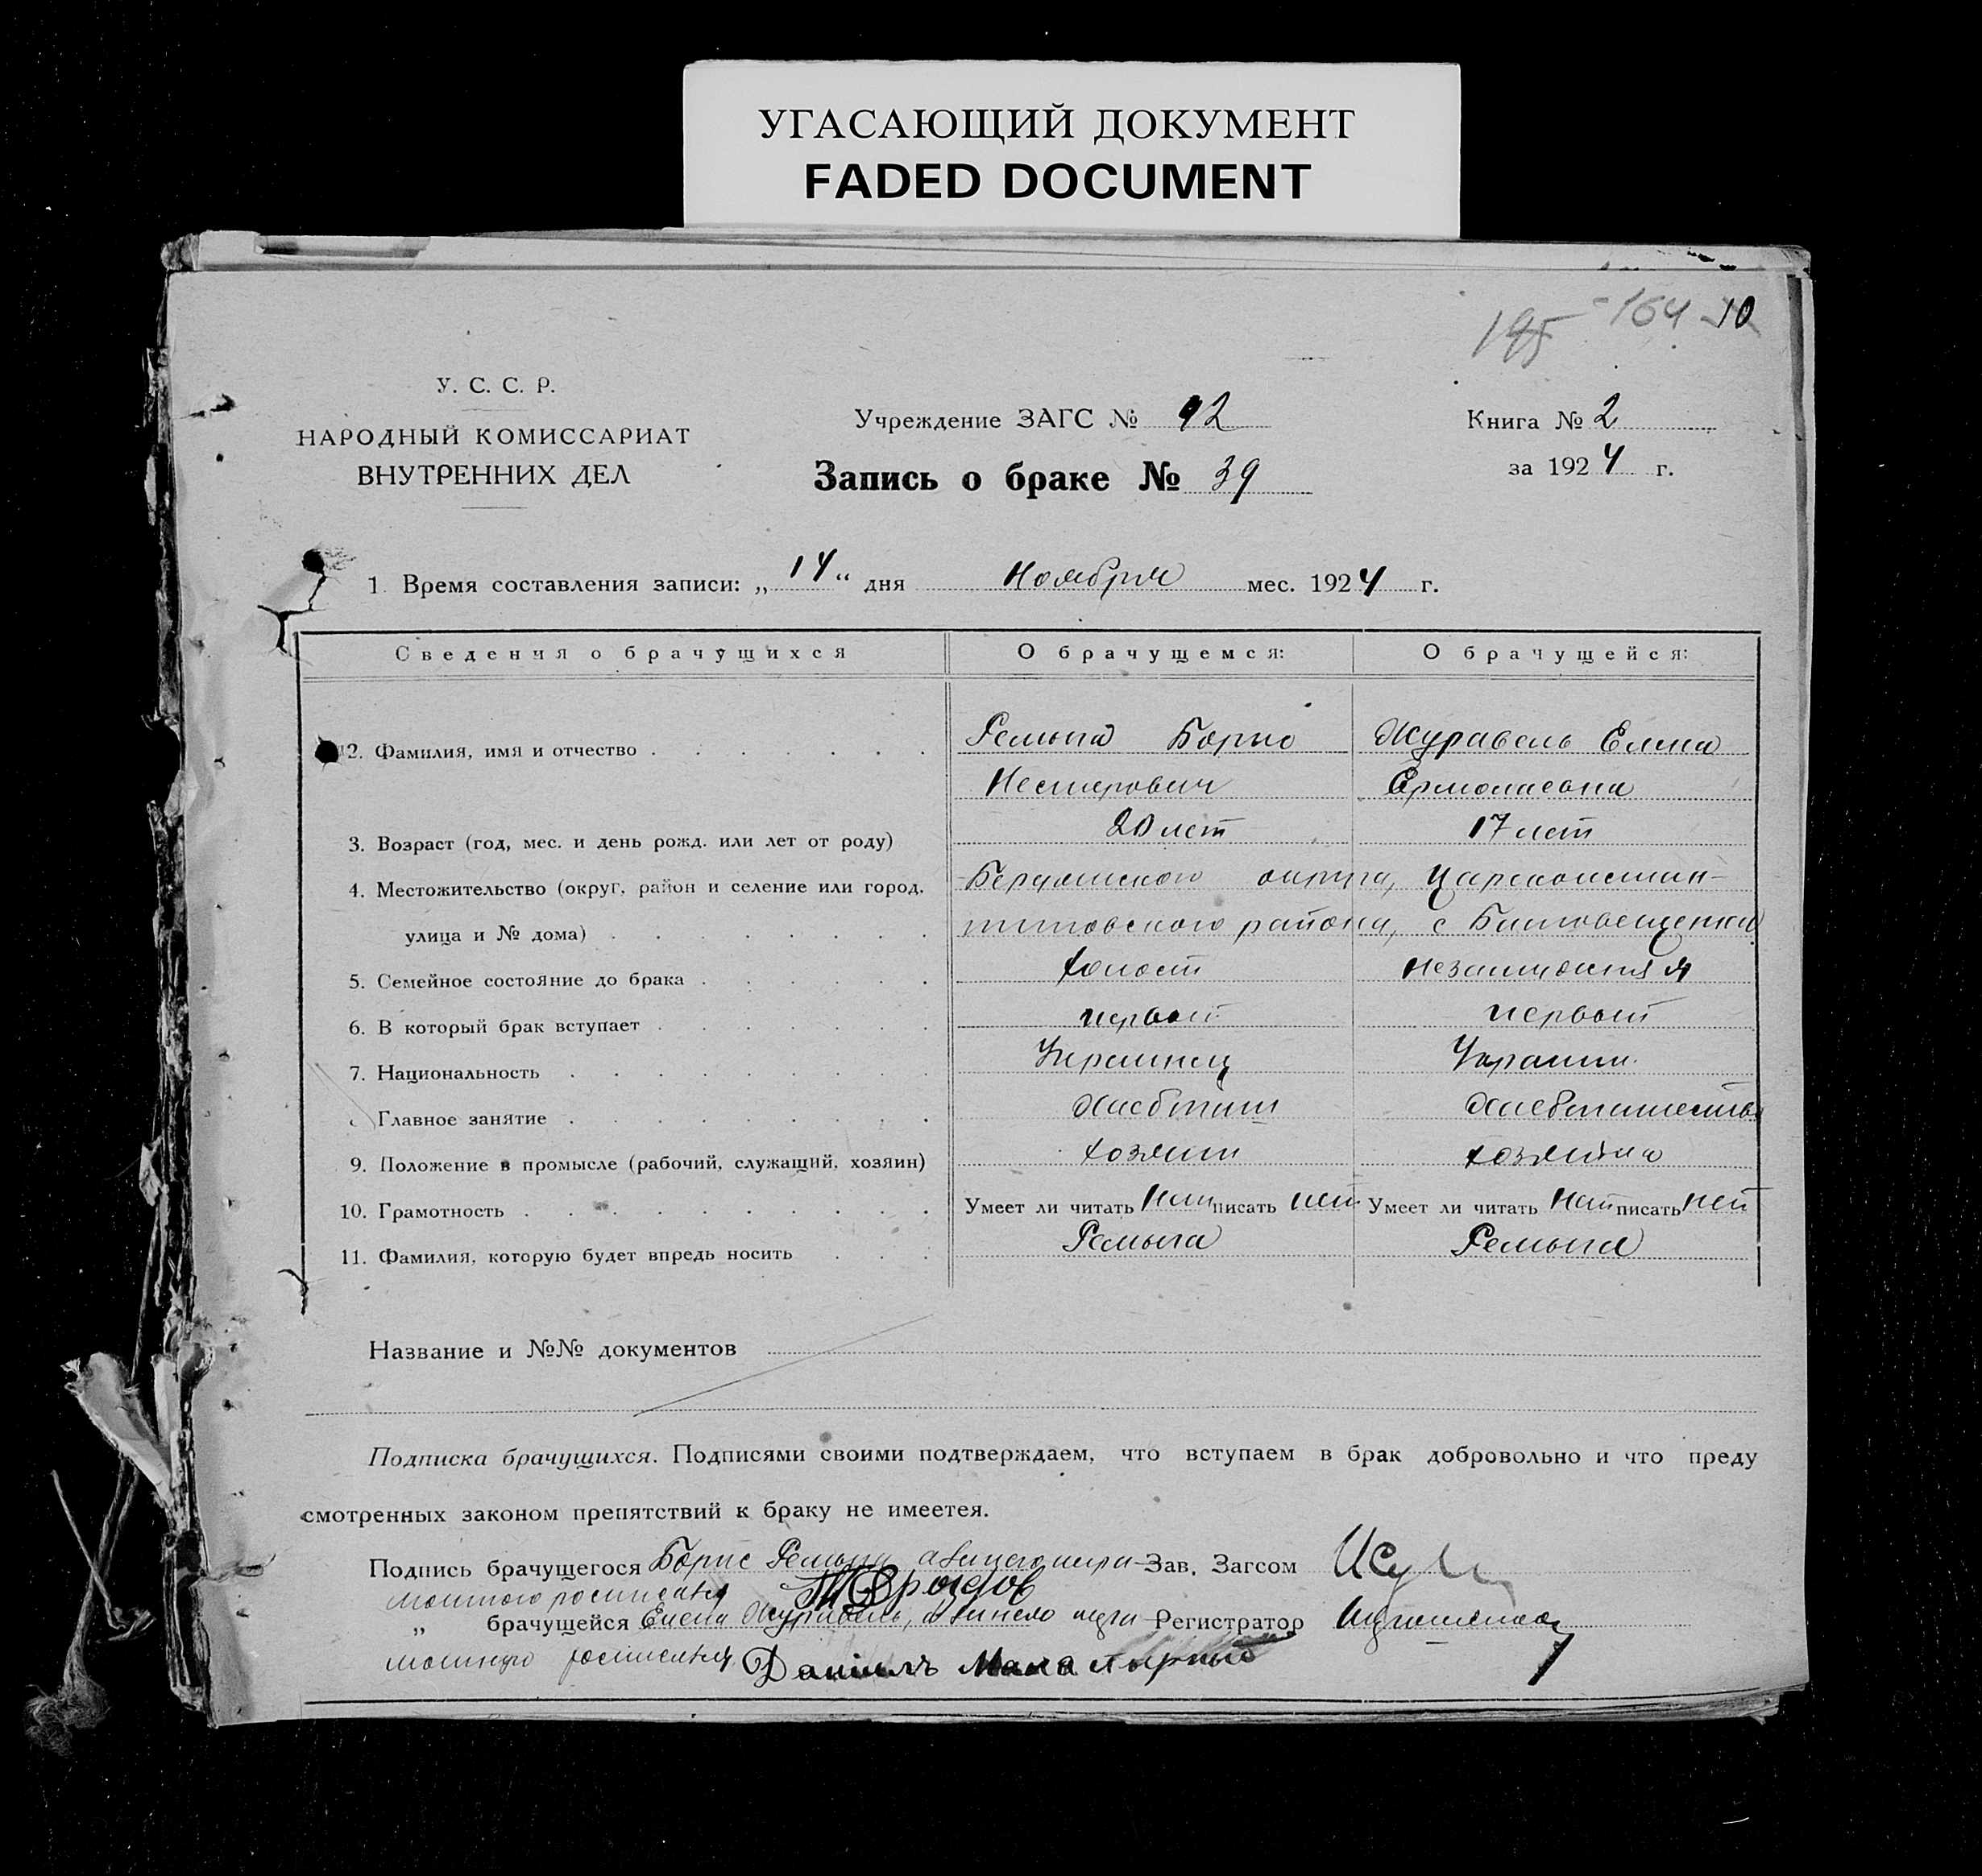 УГАСАЮЩИЙ ДОКУМЕНТ
FADED DOCUMENT
195 - 164 10
У. С. С. Р.
НАРОДНЫЙ КОМИССАРИАТ
ВНУТРЕННИХ ДЕЛ
Учреждение ЗАГС № 92
Запись о браке № 39
Книга № 2
за 1924 г.
1. Время составления записи: „14“ дня Ноября мес. 1924 г.
Сведения о брачущихся О брачущемся: О брачущейся:
2. Фамилия, имя и отчество Ремыга Борис Журавель Елена
Нестерович Ермолаевна
3. Возраст (год, мес. и день рожд. или лет от роду) 20 лет 17 лет
4. Местожительство (округ, район и селение или город, Бердянского округа, Цареконстан-
улица и № дома) тиновского района, с Благовещенка
5. Семейное состояние до брака холост незамужняя
6. В который брак вступает первый первый
7. Национальность Украинец Украин.
Главное занятие Хлебопаш
9. Положение в промысле (рабочий, служащий, хозяин) хозяин хозяйка
10. Грамотность Умеет ли читать Нет писать нет Умеет ли читать Нет писать нет
11. Фамилия, которую будет впредь носить Ремыга Ремыга
Название и №№ документов
Подписка брачущихся. Подписями своими подтверждаем, что вступаем в брак добровольно и что преду
смотренных законом препятствий к браку не имеетея.
Подпись брачущегося Борис Ремыга, а за него негра- Зав. Загсом
мотного росписался
„ брачущейся Елена Журавель, а за нею негра- Регистратор
мотную росписался Данiилъ